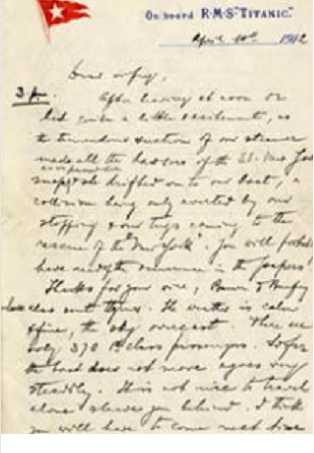 On board R·M·S "TITANIC."
April 10th 1912
Dear wifey,
3 p.
After leaving at noon we
had quite a little excitement, as
the tremendous suction of our steamer
made all the hawsers of the SS. New York
snap & she drifted on to our boat, a
collision being only averted by our
stopping & our tugs coming to the
rescue of the "New York". You will
have the occurrence in the papers.
Thanks for your wire,
sent theirs. The weather is calm
& fine, the sky overcast. There are
only 370 1st class passengers. So far
the boat does not move & goes very
steadily. It is not nice to travel
alone & leave you behind. I think
you will have to come next time